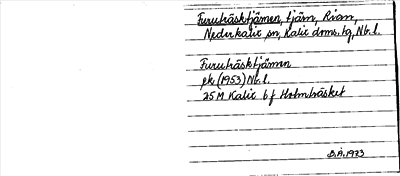 Furuträsktjärnen, tjärn, Risån,
Nederkalix sn, Kalix doms. tg, Nb. l.
Furuträsktjärnen
ek (1953) Nb. l.
25 M Kalix 6 f Holmträsket
B.Å. 1973